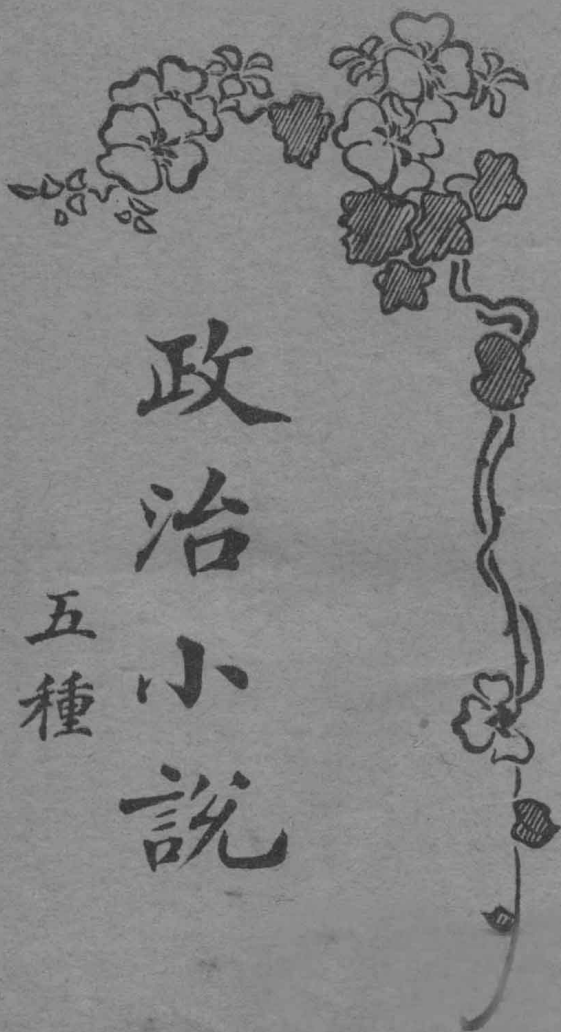 政治小說
五種